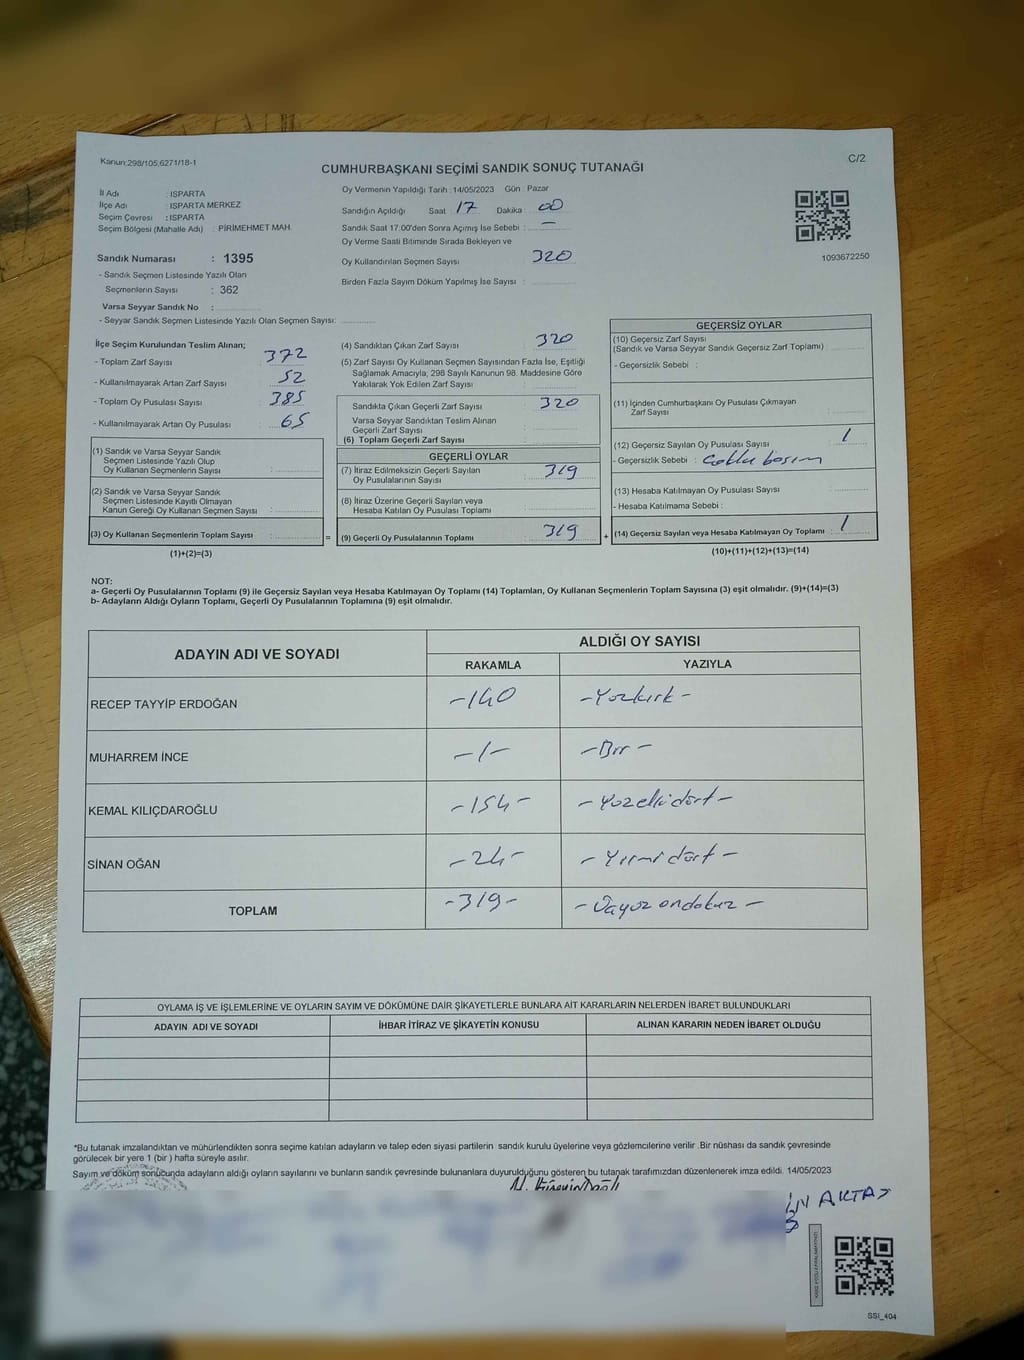 Kanun:298/105,6271/18-1
C/2
CUMHURBAŞKANI SEÇİMİ SANDIK SONUÇ TUTANAĞI
İl Adı : ISPARTA
İlçe Adı : ISPARTA MERKEZ
Seçim Çevresi : ISPARTA
Seçim Bölgesi (Mahalle Adı) : PİRİMEHMET MAH.
Oy Vermenin Yapıldığı Tarih : 14/05/2023 Gün : Pazar
Sandığın Açıldığı Saat 17 Dakika : 00
Sandık Saat 17.00'den Sonra Açımış İse Sebebi : —
Oy Verme Saati Bitiminde Sırada Bekleyen ve
Oy Kullandırılan Seçmen Sayısı 320
Birden Fazla Sayım Döküm Yapılmış İse Sayısı :
1093672250
Sandık Numarası : 1395
- Sandık Seçmen Listesinde Yazılı Olan
Seçmenlerin Sayısı : 362
Varsa Seyyar Sandık No :
- Seyyar Sandık Seçmen Listesinde Yazılı Olan Seçmen Sayısı:
İlçe Seçim Kurulundan Teslim Alınan;
- Toplam Zarf Sayısı 372
- Kullanılmayarak Artan Zarf Sayısı 52
- Toplam Oy Pusulası Sayısı 385
- Kullanılmayarak Artan Oy Pusulası 65
(1) Sandık ve Varsa Seyyar Sandık
Seçmen Listesinde Yazılı Olup
Oy Kullanan Seçmenlerin Sayısı :
(2) Sandık ve Varsa Seyyar Sandık
Seçmen Listesinde Kayıtlı Olmayan
Kanun Gereği Oy Kullanan Seçmen Sayısı :
(3) Oy Kullanan Seçmenlerin Toplam Sayısı :
(1)+(2)=(3)
(4) Sandıktan Çıkan Zarf Sayısı 320
(5) Zarf Sayısı Oy Kullanan Seçmen Sayısından Fazla İse, Eşitliği
Sağlamak Amacıyla, 298 Sayılı Kanunun 98. Maddesine Göre
Yakılarak Yok Edilen Zarf Sayısı
Sandıkta Çıkan Geçerli Zarf Sayısı 320
Varsa Seyyar Sandıktan Teslim Alınan
Geçerli Zarf Sayısı
(6) Toplam Geçerli Zarf Sayısı
GEÇERLİ OYLAR
(7) İtiraz Edilmeksizin Geçerli Sayılan
Oy Pusulalarının Sayısı 319
(8) İtiraz Üzerine Geçerli Sayılan veya
Hesaba Katılan Oy Pusulası Toplamı
= (9) Geçerli Oy Pusulalarının Toplamı 319
GEÇERSİZ OYLAR
(10) Geçersiz Zarf Sayısı
(Sandık ve Varsa Seyyar Sandık Geçersiz Zarf Toplamı) :
- Geçersizlik Sebebi :
(11) İçinden Cumhurbaşkanı Oy Pusulası Çıkmayan
Zarf Sayısı :
(12) Geçersiz Sayılan Oy Pusulası Sayısı : 1
- Geçersizlik Sebebi : Çoklu basım
(13) Hesaba Katılmayan Oy Pusulası Sayısı
- Hesaba Katılmama Sebebi :
+ (14) Geçersiz Sayılan veya Hesaba Katılmayan Oy Toplamı : 1
(10)+(11)+(12)+(13)=(14)
NOT:
a- Geçerli Oy Pusulalarının Toplamı (9) ile Geçersiz Sayılan veya Hesaba Katılmayan Oy Toplamı (14) Toplamları, Oy Kullanan Seçmenlerin Toplam Sayısına (3) eşit olmalıdır. (9)+(14)=(3)
b- Adayların Aldığı Oyların Toplamı, Geçerli Oy Pusulalarının Toplamına (9) eşit olmalıdır.
ADAYIN ADI VE SOYADI
ALDIĞI OY SAYISI
RAKAMLA YAZIYLA
RECEP TAYYİP ERDOĞAN -140 -Yüzkırk-
MUHARREM İNCE -1- -Bir-
KEMAL KILIÇDAROĞLU -154- -Yüzellidört-
SİNAN OĞAN -24- -Yirmidört-
TOPLAM -319- -Üçyüzondokuz-
OYLAMA İŞ VE İŞLEMLERİNE VE OYLARIN SAYIM VE DÖKÜMÜNE DAİR ŞİKAYETLERLE BUNLARA AİT KARARLARIN NELERDEN İBARET BULUNDUKLARI
ADAYIN ADI VE SOYADI İHBAR İTİRAZ VE ŞİKAYETİN KONUSU ALINAN KARARIN NEDEN İBARET OLDUĞU
*Bu tutanak imzalandıktan ve mühürlendikten sonra seçime katılan adayların ve talep eden siyasi partilerin sandık kurulu üyelerine veya gözlemcilerine verilir .Bir nüshası da sandık çevresinde
görülecek bir yere 1 (bir ) hafta süreyle asılır.
Sayım ve döküm sonucunda adayların aldığı oyların sayılarını ve bunların sandık çevresinde bulunanlara duyurulduğunu gösteren bu tutanak tarafımızdan düzenlenerek imza edildi. 14/05/2023
AKTAŞ
SSI_404